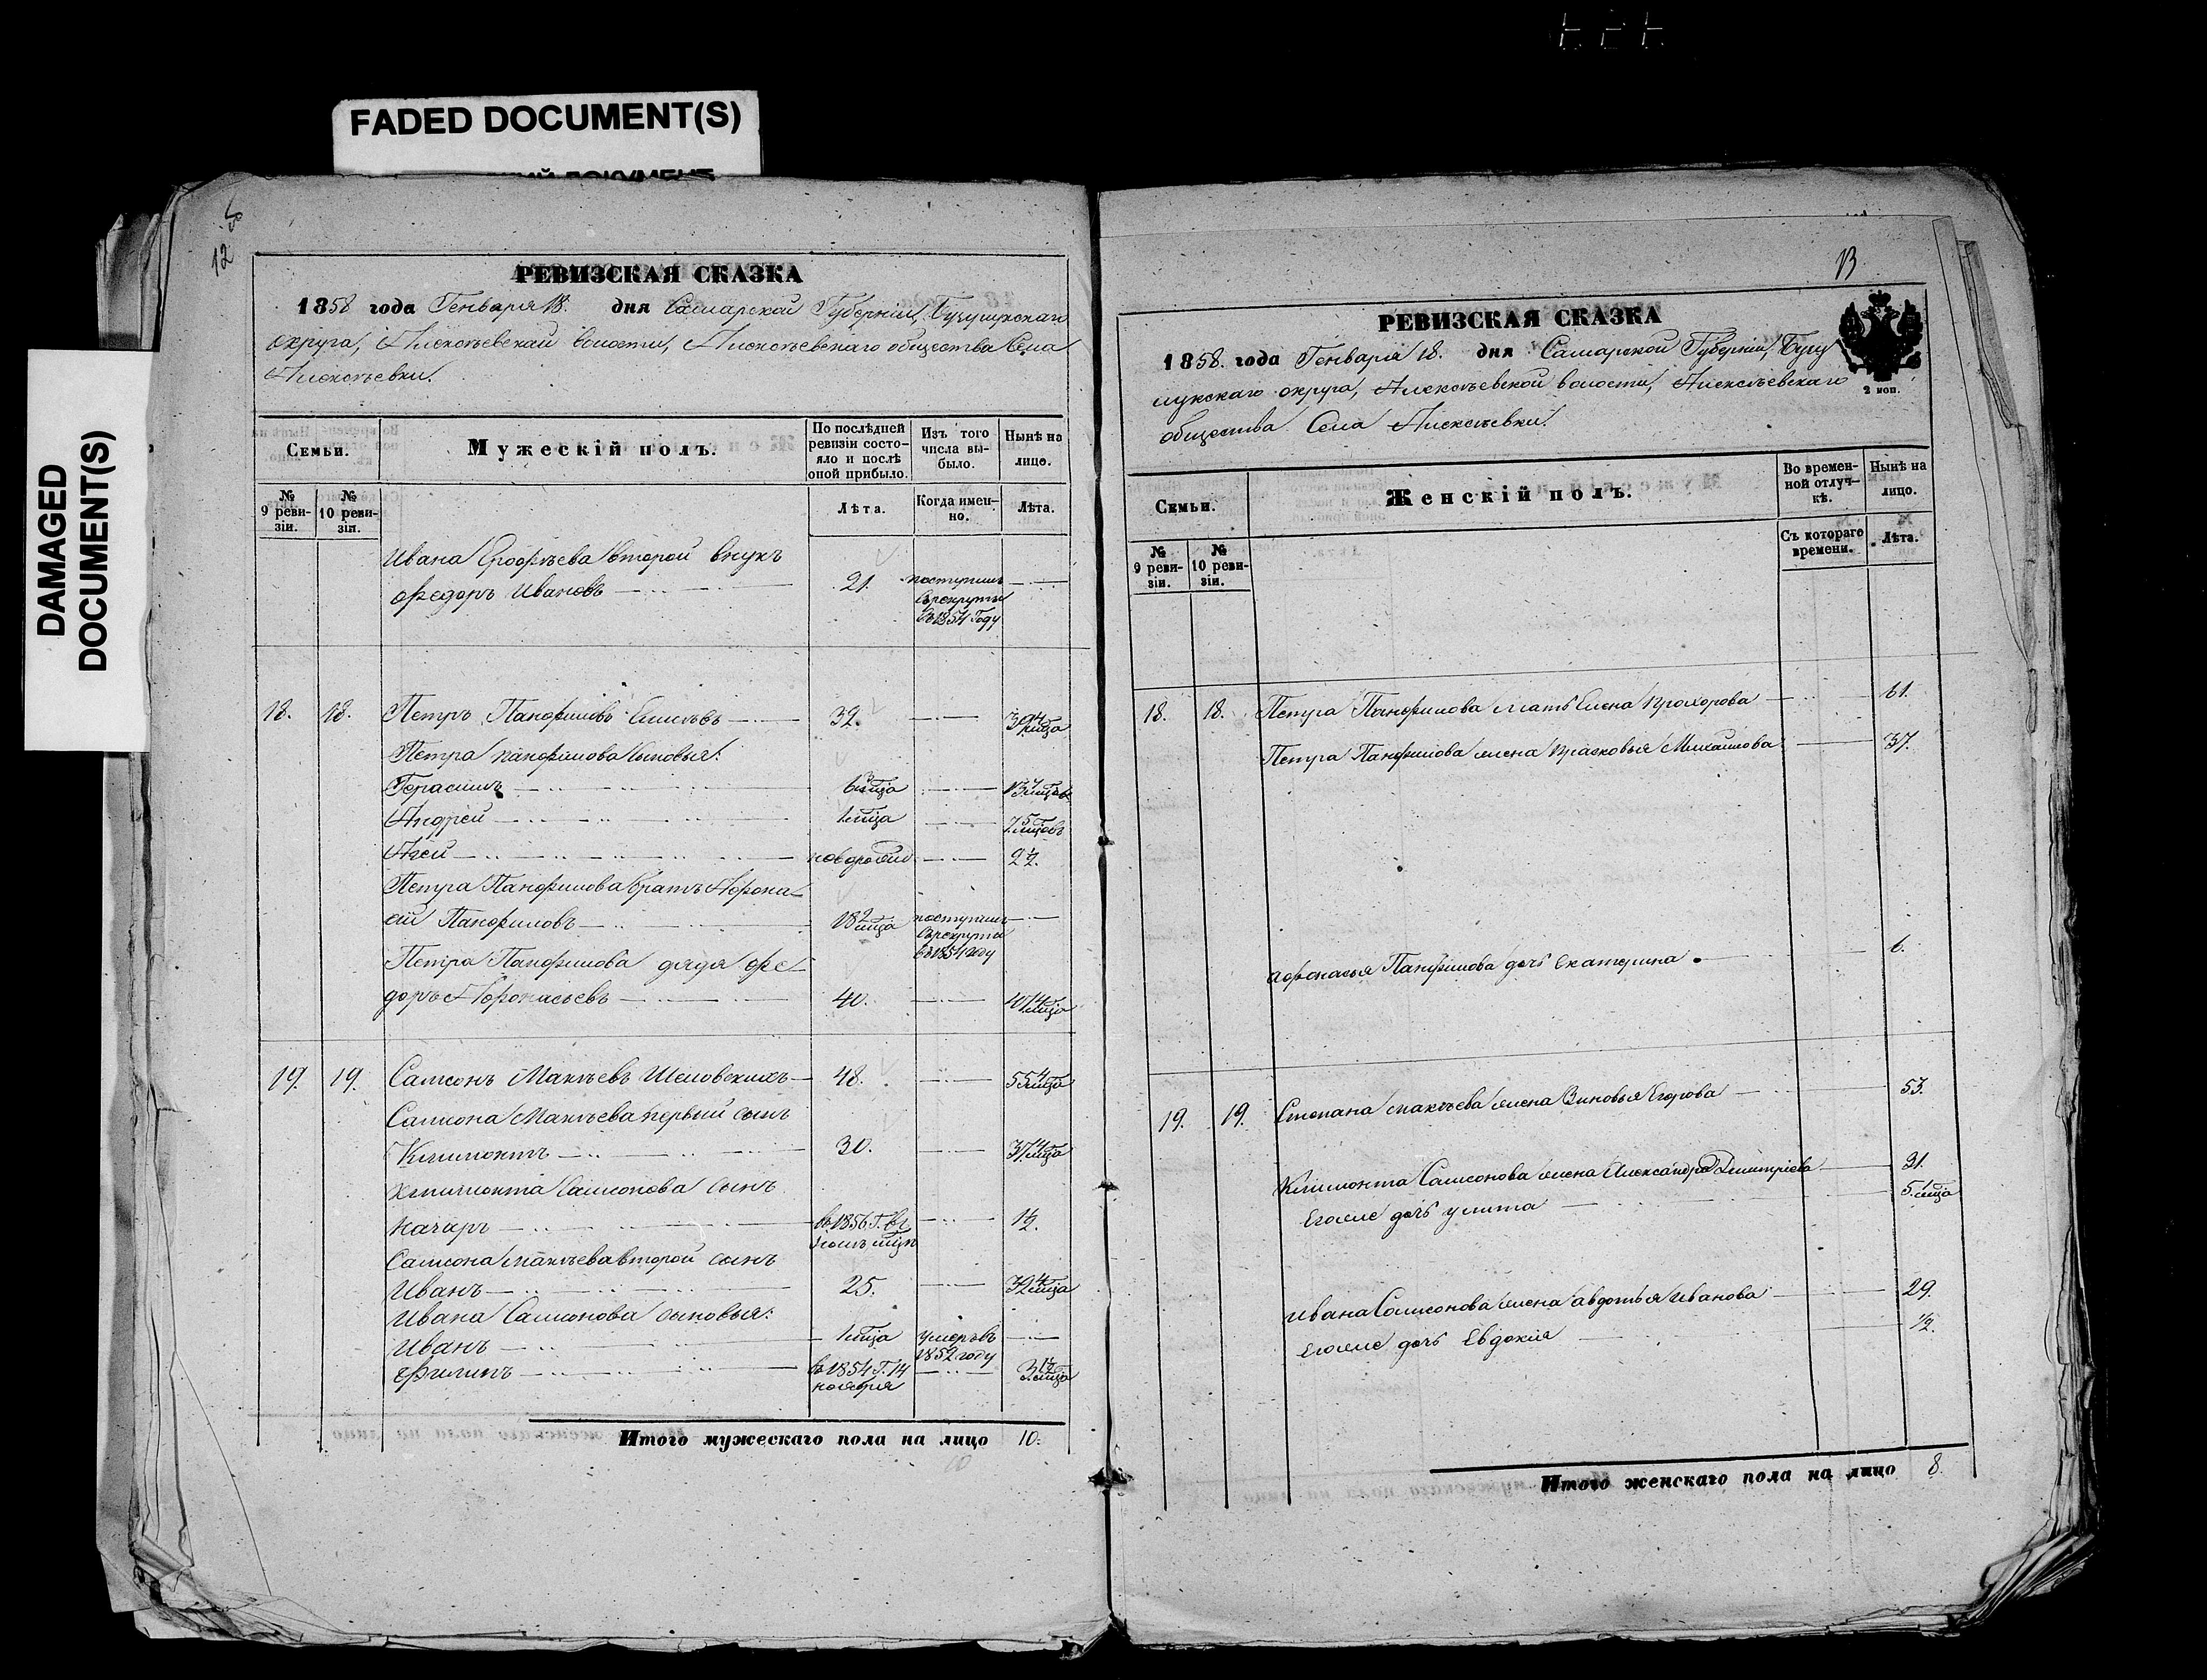 FADED DOCUMENT(S)
DAMAGED
DOCUMENT(S)
12
РЕВИЗСКАЯ СКАЗКА
1858 года Генваря 18. дня Самарской Губерніи, Бузулукскаго
округа, Алексѣевской волости, Алексѣевскаго общества Села
Алексѣевки.
Семьи.
Мужескій полъ.
По послѣдней
ревизіи состо-
яло и послѣ
оной прибыло.
Изъ того
числа вы-
было.
Нынѣ на
лицо.
№
9 реви-
зіи.
№
10 реви-
зіи.
Лѣта.
Когда имен-
но.
Лѣта.
Ивана Ерофѣева второй внукъ
Федоръ Ивановъ 21. поступилъ
въ рекруты
въ 1854 Году
18. 18. Петръ Панфиловъ 32.
Петра Панфилова сыновья:
Герасимъ
Андрей 1 мѣца
Агей новорожден 2 1/2.
Петра Панфилова братъ Афона-
сій Панфиловъ 18 2 мѣца поступилъ
въ рекруты
въ 1854 году
Петра Панфилова дядя Фе-
доръ Афонасьевъ 40. 47 4 мѣца
19. 19. Самсонъ Макѣевъ Шеловскихъ 48. 55 4 мѣца
Самсона Макѣева первый сынъ
Климонтъ 30. 37 4 мѣца
Климонта Самсонова сынъ
въ 1856 Г. въ 1 1/2.
Самсона Макѣева второй сынъ
Иванъ 25. 32 4 мѣца
Ивана Самсонова сыновья:
Иванъ 1 мѣца умеръ въ
1852 году
Филипъ въ 1854 Г. 14
ноября
Итого мужескаго пола на лицо 10.
13
РЕВИЗСКАЯ СКАЗКА
2 коп.
1858. года Генваря 18. дня Самарской Губерніи, Бузу
лукскаго округа, Алексѣевской волости, Алексѣевскаго
общества Села Алексѣевки.
Семьи.
Женскій полъ.
Во времен-
ной отлуч-
кѣ.
Нынѣ на
лицо.
№
9 реви-
зіи.
№
10 реви-
зіи.
Съ котораго
времени.
Лѣта.
18. 18. Петра Панфилова мать Елена Прохорова 61.
Петра Панфилова жена Прасковья Михайлова 37.
Афонасья Панфилова дочь Екатерина 6.
19. 19. Степана Макѣева жена Зиновья Егорова 53.
Климонта Самсонова жена Александра Дмитріева 31.
Егоже дочь Улита 5. 1 мѣца
Ивана Самсонова жена Авдотья Иванова 29.
Егоже дочь Евдокия 1/2.
Итого женскаго пола на лицо 8.